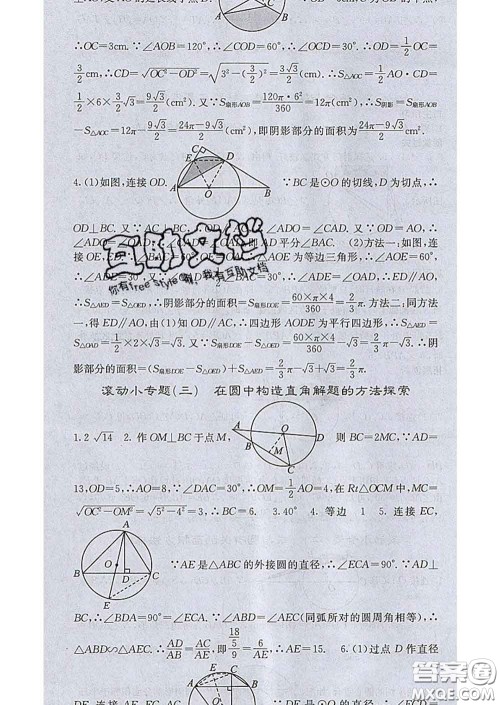 ∴OC=3cm. ∵∠AOB=120°,∴∠COD=60°,∴∠OCD=30°,∴OD=1/2 OC=
3/2 cm,∴CD=√(OC²-OD²)=√(3²-(3/2)²)=3√3/2(cm),∴S△AOC=1/2 AO·CD=
1/2×6×3√3/2=9√3/2(cm²). 又∵S扇形AOB=120π·6²/360=12π(cm²),∴S阴影=S扇形AOB
-S△AOC=12π-9√3/2=(24π-9√3)/2(cm²),即阴影部分的面积为(24π-9√3)/2 cm².
4.(1)如图,连接OD. ∵BC是⊙O的切线,D为切点,∴
OD⊥BC. 又∵AC⊥BC,∴OD∥AC,∴∠ADO=∠CAD. 又∵OD=OA,∴
∠ADO=∠OAD,∴∠CAD=∠OAD,即AD平分∠BAC. (2)方法一:如图,连
接OE,ED. ∵∠BAC=60°,OE=OA,∴△OAE为等边三角形,∴∠AOE=60°,
∴∠ADE=30°. 又∵∠OAD=
∴S△AED=S△OED,∴阴影部分的面积=S扇形DOE=60×π×4/360=2/3π. 方法二:同方法
一,得ED∥AO,由(1)知OD∥AC,∴四边形AODE为平行四边形,∴S△AED=
S△OAD=1/2×2×√3=√3. 又∵S扇形DOE-S△OED=60×π×4/360-√3=2/3π-√3,∴阴
影部分的面积=(S扇形DOE-S△OED)+S△AED=2/3π-√3+√3=2/3π.
滚动小专题(三) 在圆中构造直角解题的方法探索
1.2√14 2.作OM⊥BC于点M, 则BC=2MC,∵AD=
13,OD=5,∴AO=8,∵∠DAC=30°,∴OM=1/2 AO=4,在Rt△OCM中,MC=
√(OC²-OM²)=√(5²-4²)=3,∴BC=6. 3.40° 4.等边 1 5.连接EC,
∵AE是△ABC的外接圆的直径,∴∠ECA=90°. ∵AD⊥
BC,∴∠BDA=90°=∠ECA. ∵∠ABD=∠AEC(同弧所对的圆周角相等),∴
△ABD∽△AEC,∴AD/AB=AC/AE,即(18/5)/9=6/AE,∴AE=15. 6.(1)过点D作直径
互助文档
你有free style嘛,我有互助文档
答案圈
MXQE.COM